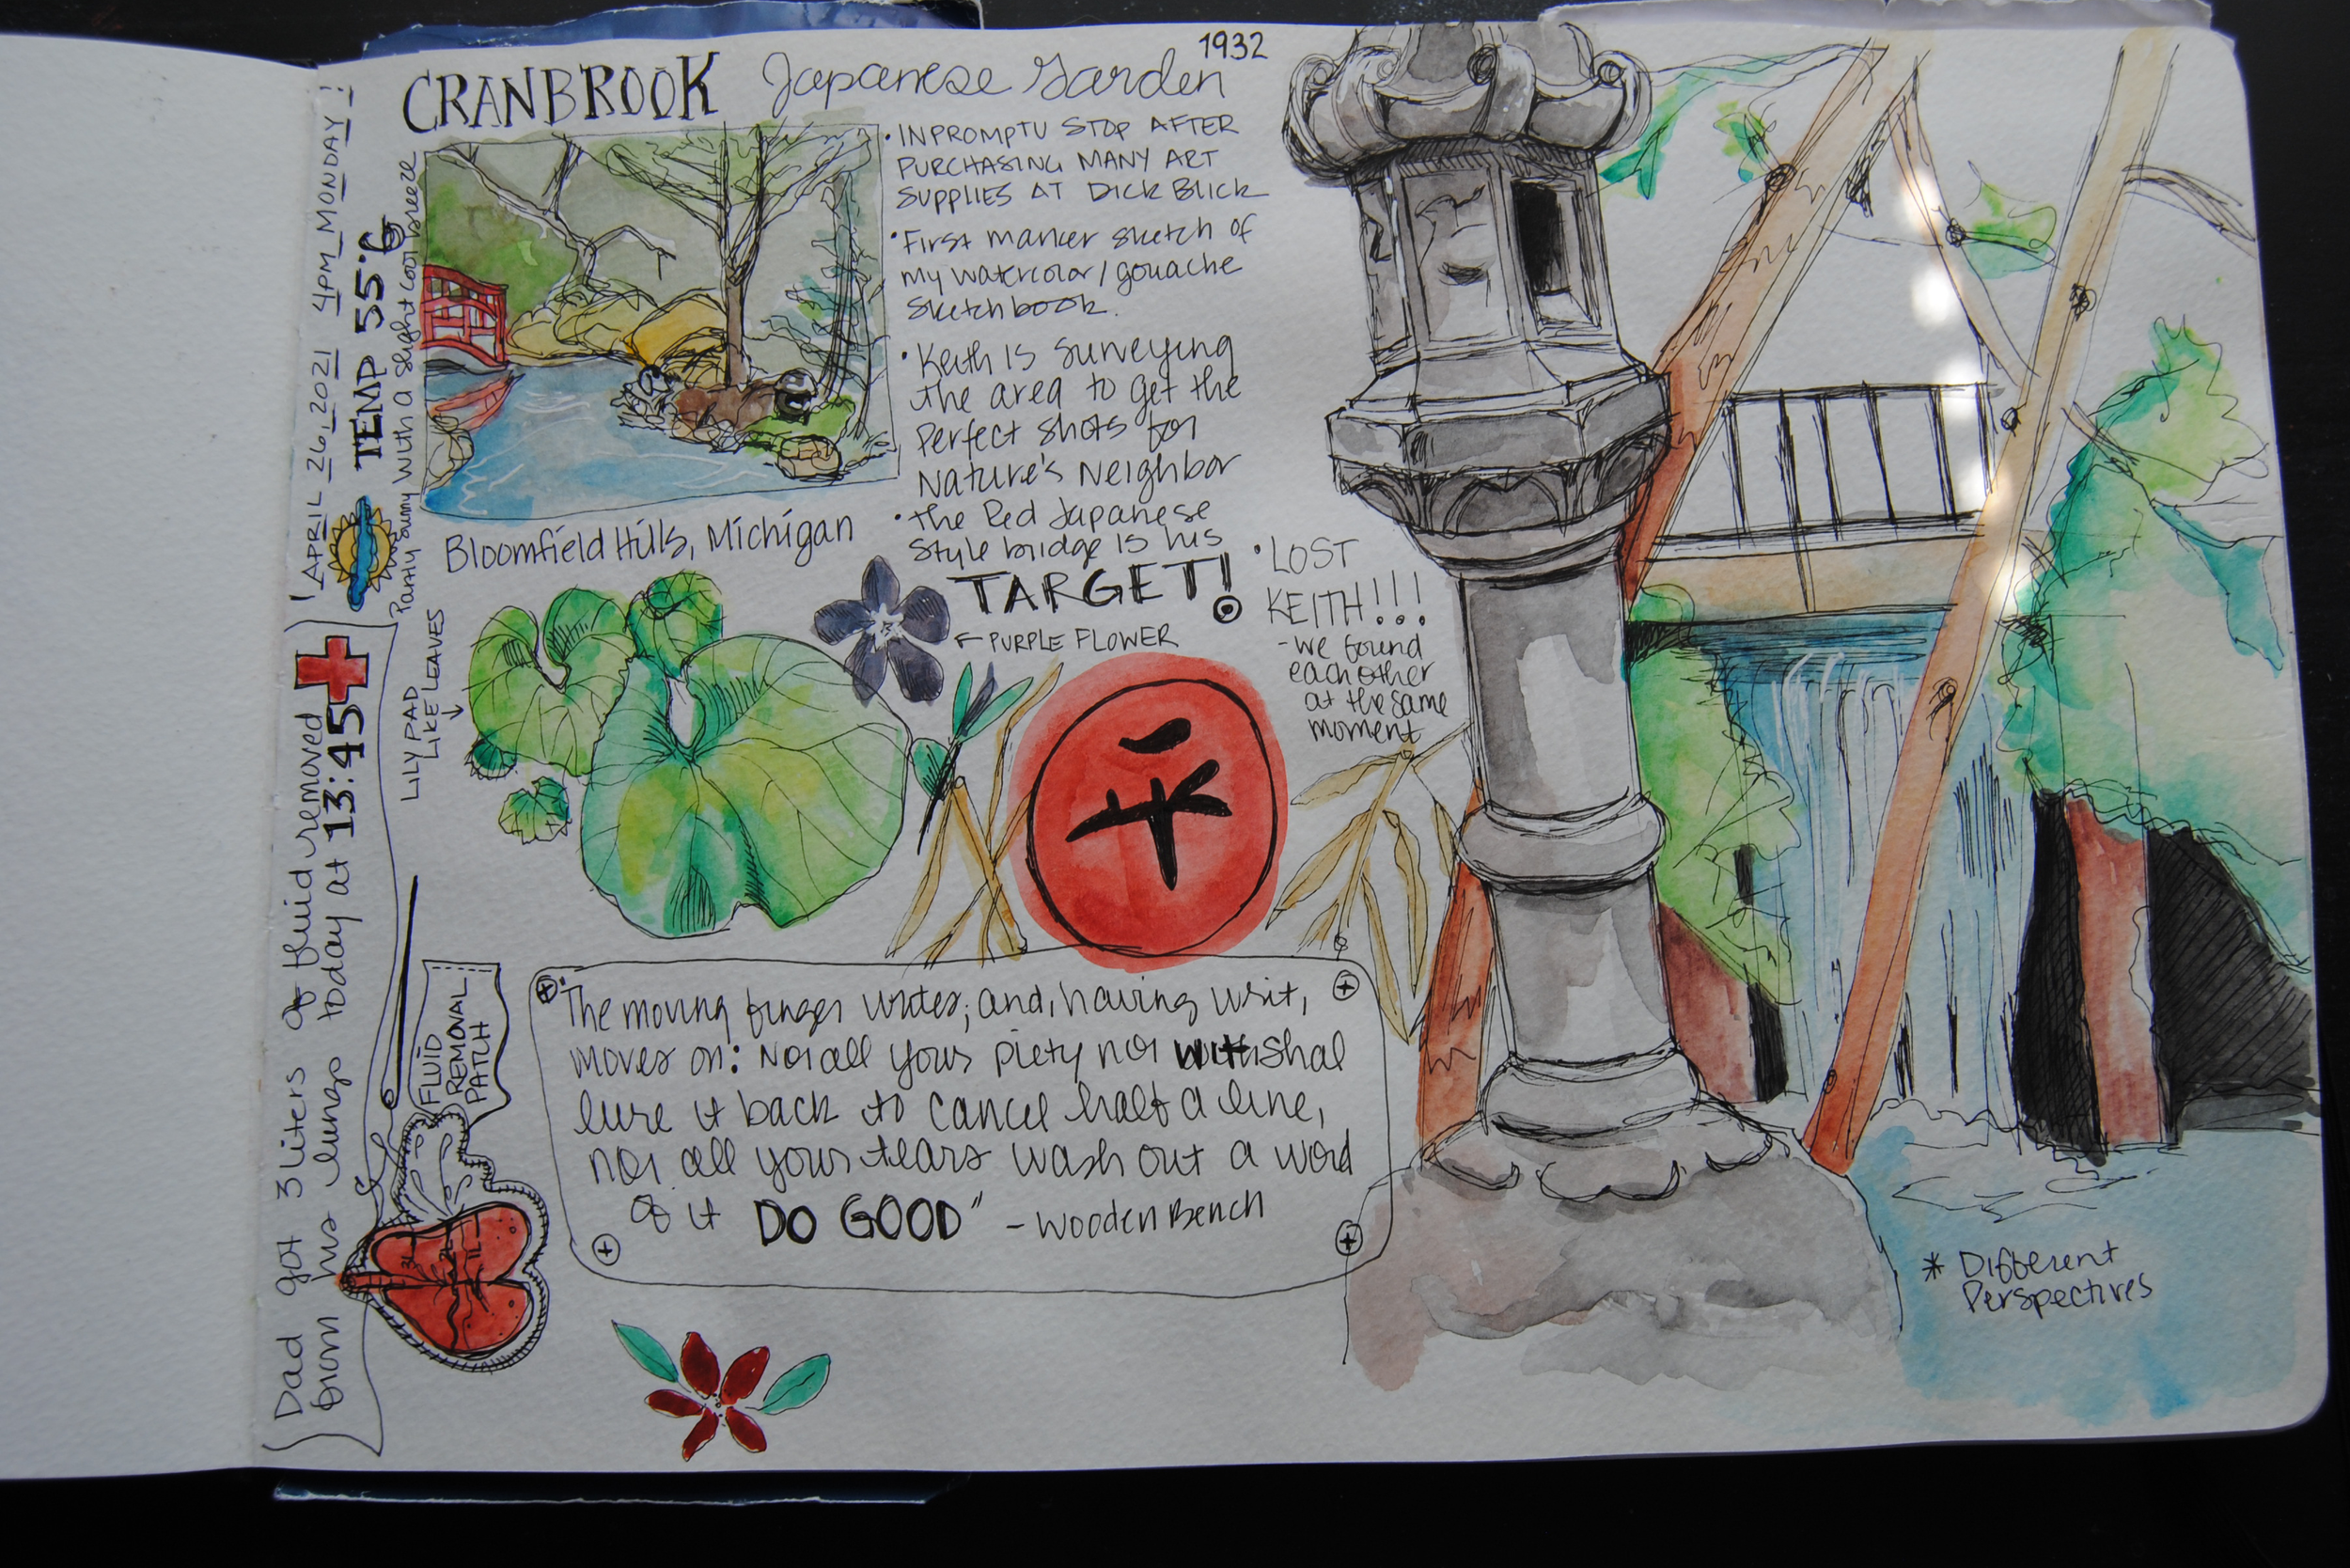 CRANBROOK Japanese Garden 1932
• INPROMPTU STOP AFTER
PURCHASING MANY ART
SUPPLIES AT DICK BLICK
• First marker sketch of
my watercolor/gouache
sketchbook.
• Keith is surveying
the area to get the
Perfect shots for
Nature's Neighbor
• the Red Japanese
style bridge is his
TARGET!
← PURPLE FLOWER
• LOST
KEITH!!!
- we found
each other
at the same
moment
Bloomfield Hills, Michigan
APRIL 26, 2021 4PM MONDAY!
TEMP 55°
Partly sunny with a slight cool breeze
LILY PAD
LIKE LEAVES
平
Dad got 3 liters of fluid removed
from his lungs today at 13:45
FLUID
REMOVAL
PATCH
"The moving finger writes; and, having writ,
moves on: Nor all your piety nor wit shal
lure it back to cancel half a line,
nor all your tears wash out a word
of it DO GOOD" - Wooden Bench
* Different
Perspectives